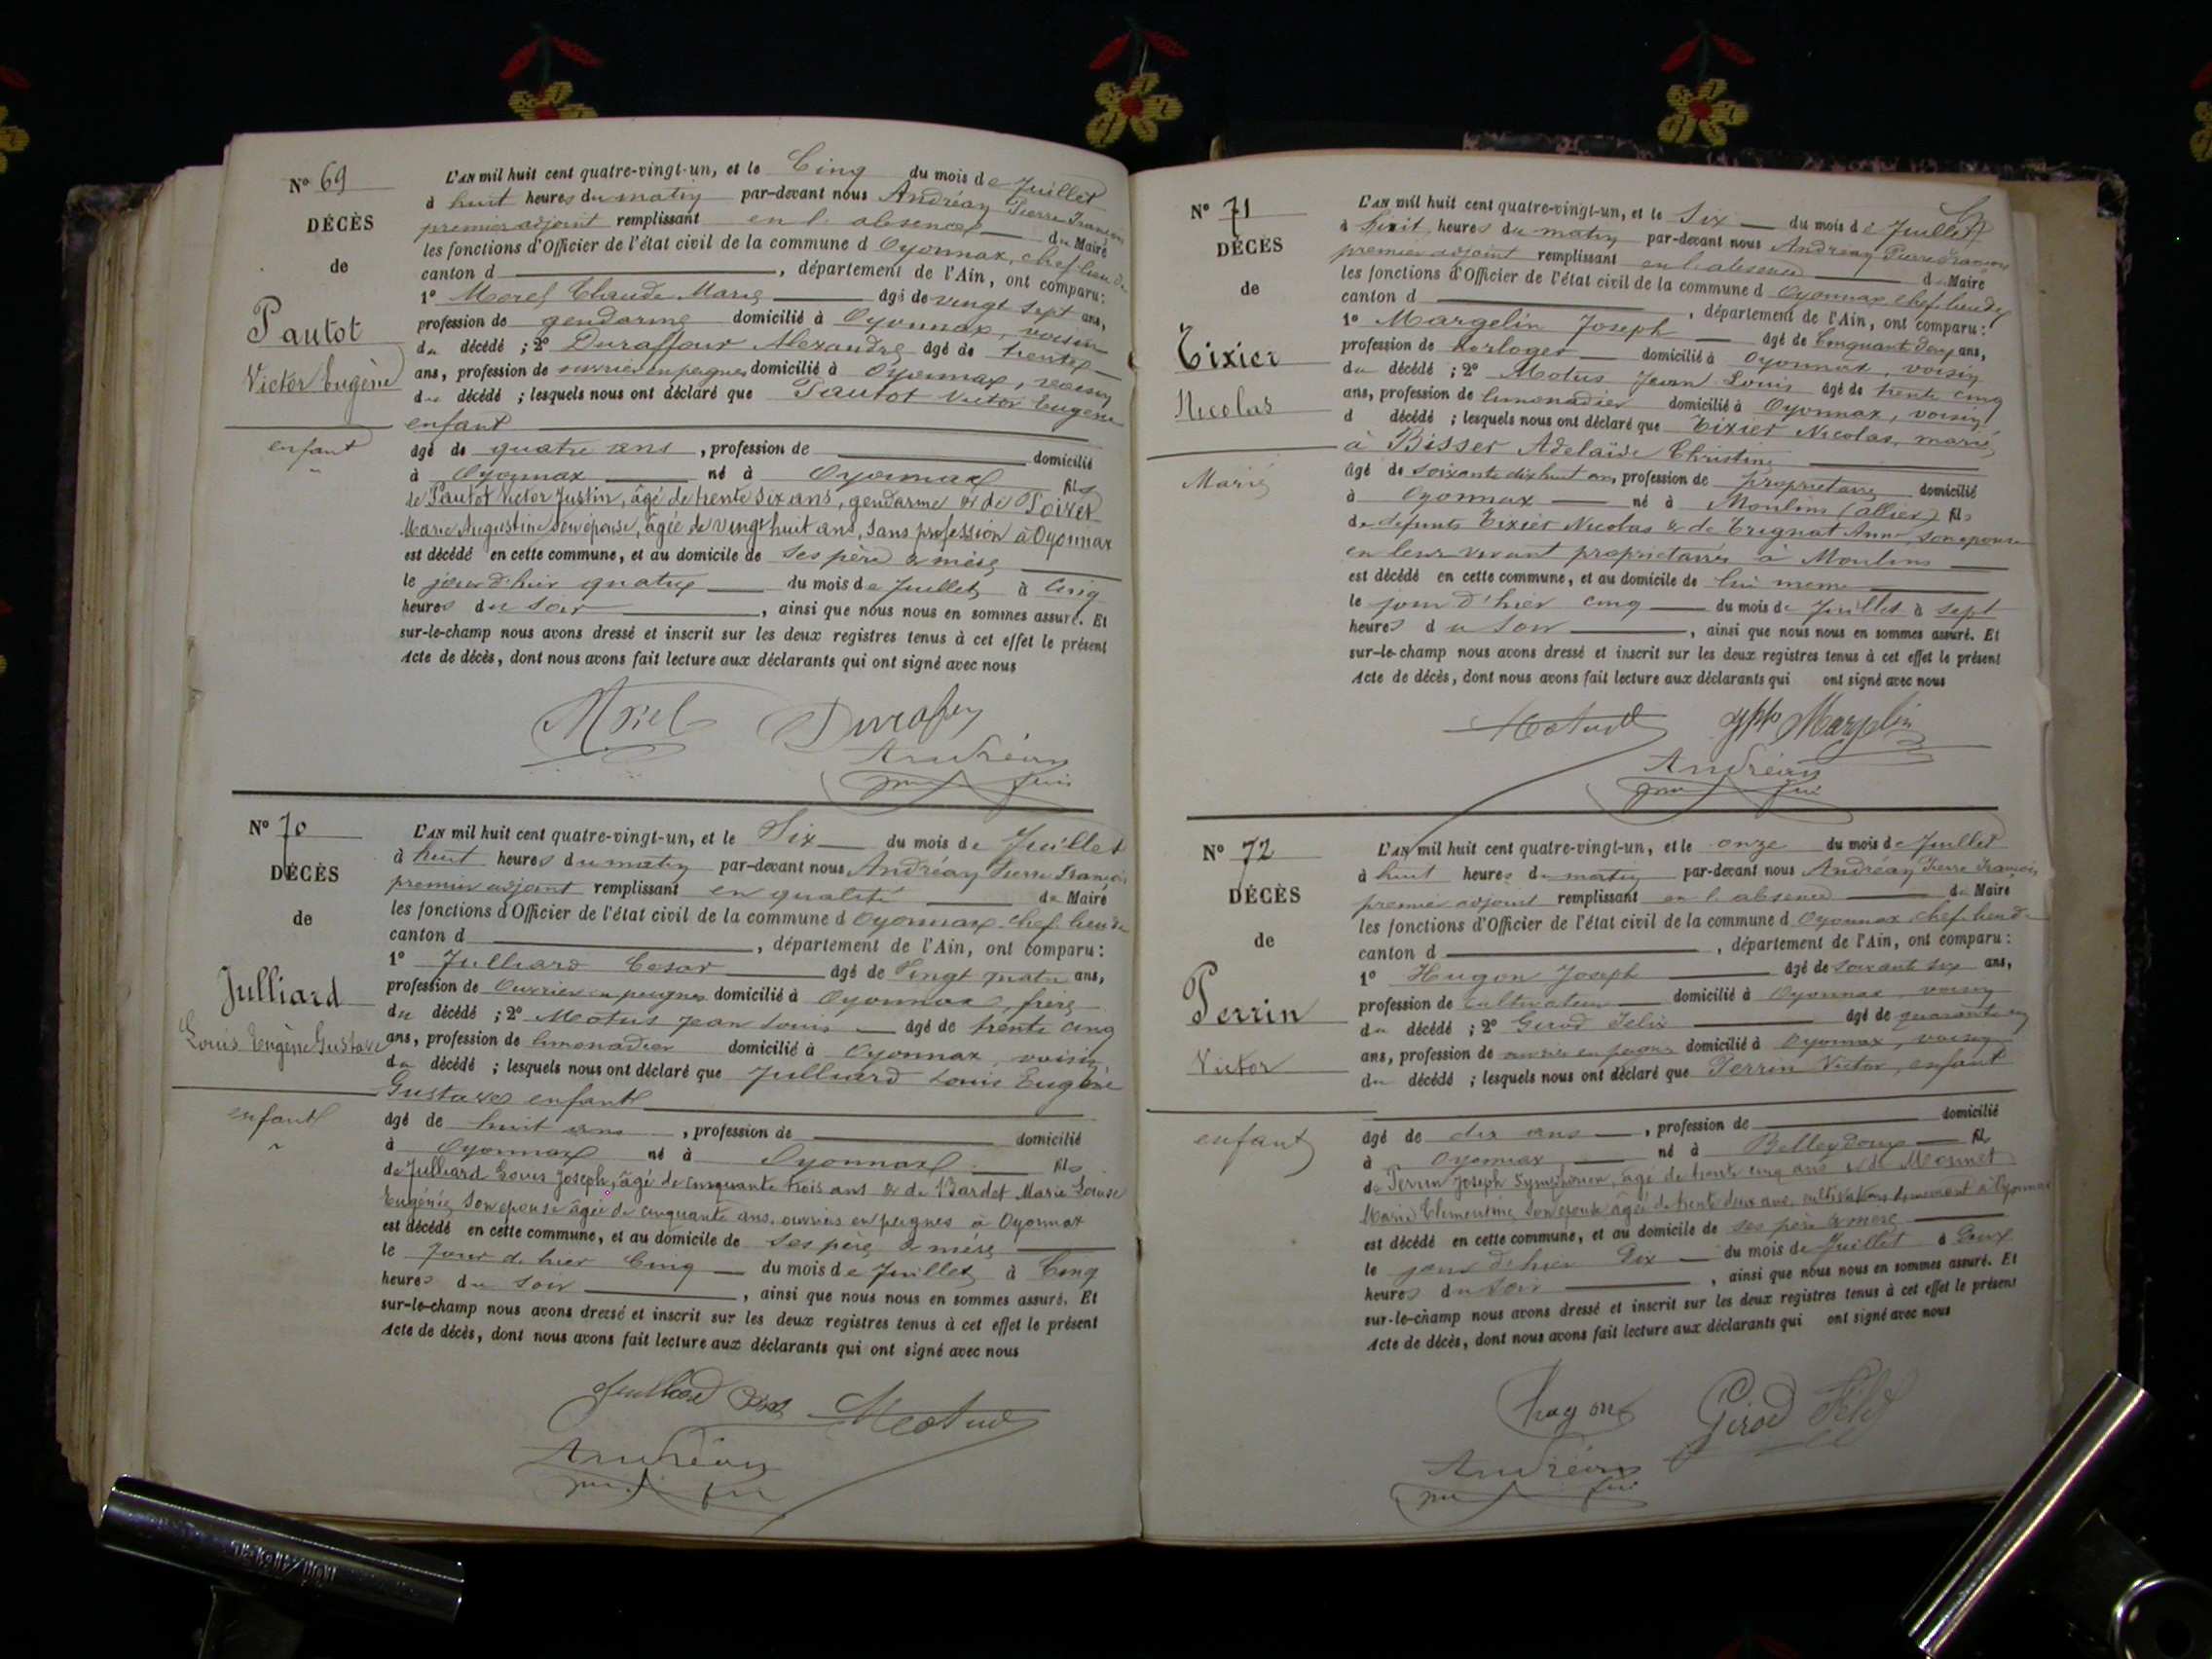 N° 69
DÉCÈS
de
Pautot
Victor Eugène
enfant
L'AN mil huit cent quatre-vingt-un, et le Cinq du mois de Juillet
à huit heures du matin par-devant nous Andréan Pierre François
premier adjoint remplissant en l'absence du Maire
les fonctions d'Officier de l'état civil de la commune d Oyonnax, chef lieu de
canton d , département de l'Ain, ont comparu:
1° Morel Claude Marie âgé de vingt sept ans,
profession de gendarme domicilié à Oyonnax, voisin
du décédé ; 2° Duraffour Alexandre âgé de trente
ans, profession de ouvrier en peignes domicilié à Oyonnax, voisin
du décédé ; lesquels nous ont déclaré que Pautot Victor Eugène
enfant
âgé de quatre ans , profession de domicilié
à Oyonnax né à Oyonnax fils
de Pautot Victor Justin, âgé de trente six ans, gendarme & de Poizet
Marie Augustine son épouse, âgée de vingt huit ans, sans profession à Oyonnax
est décédé en cette commune, et au domicile de ses père & mère
le jour d'hier quatre du mois de Juillet à Cinq
heures du soir , ainsi que nous nous en sommes assuré. Et
sur-le-champ nous avons dressé et inscrit sur les deux registres tenus à cet effet le présent
Acte de décès, dont nous avons fait lecture aux déclarants qui ont signé avec nous
Morel Duraffour
Andréan
N° 70
DÉCÈS
de
Julliard
Louis Eugène Gustave
enfant
L'AN mil huit cent quatre-vingt-un, et le Six du mois de Juillet
à huit heures du matin par-devant nous Andréan Pierre François
premier adjoint remplissant en qualité de Maire
les fonctions d'Officier de l'état civil de la commune d Oyonnax chef lieu de
canton d , département de l'Ain, ont comparu:
1° Julliard Cesar âgé de Vingt quatre ans,
profession de Ouvrier en peignes domicilié à Oyonnax, frère
du décédé ; 2° Motus Jean Louis âgé de trente cinq
ans, profession de limonadier domicilié à Oyonnax, voisin
du décédé ; lesquels nous ont déclaré que Julliard Louis Eugène
Gustave enfant
âgé de huit ans , profession de domicilié
à Oyonnax né à Oyonnax fils
de Julliard Louis Joseph, âgé de cinquante trois ans & de Bardet Marie Louise
Eugénie, son épouse âgée de cinquante ans, ouvriers en peignes à Oyonnax
est décédé en cette commune, et au domicile de ses père & mère
le jour de hier Cinq du mois de Juillet à Cinq
heures du soir , ainsi que nous nous en sommes assuré. Et
sur-le-champ nous avons dressé et inscrit sur les deux registres tenus à cet effet le présent
Acte de décès, dont nous avons fait lecture aux déclarants qui ont signé avec nous
Julliard Motus
Andréan
N° 71
DÉCÈS
de
Tixier
Nicolas
Marié
L'AN mil huit cent quatre-vingt-un, et le Six du mois de Juillet
à huit heures du matin par-devant nous Andréan Pierre François
premier adjoint remplissant en l'absence du Maire
les fonctions d'Officier de l'état civil de la commune d Oyonnax chef lieu de
canton d , département de l'Ain, ont comparu:
1° Margelin Joseph âgé de Cinquante deux ans,
profession de horloger domicilié à Oyonnax, voisin
du décédé ; 2° Motus Jean Louis âgé de trente cinq
ans, profession de limonadier domicilié à Oyonnax, voisin
d décédé ; lesquels nous ont déclaré que Tixier Nicolas, marié
à Bisser Adelaïde Christine
âgé de soixante dix huit ans, profession de propriétaire domicilié
à Oyonnax né à Moulins (Allier) fils
de défunts Tixier Nicolas & de Trignat Anne, son épouse
en leur vivant propriétaires à Moulins
est décédé en cette commune, et au domicile de lui même
le jour d'hier cinq du mois de Juillet à sept
heures du soir , ainsi que nous nous en sommes assuré. Et
sur-le-champ nous avons dressé et inscrit sur les deux registres tenus à cet effet le présent
Acte de décès, dont nous avons fait lecture aux déclarants qui ont signé avec nous
Motus Margelin
Andréan
N° 72
DÉCÈS
de
Perrin
Victor
enfant
L'AN mil huit cent quatre-vingt-un, et le onze du mois de Juillet
à huit heures du matin par-devant nous Andréan Pierre François
premier adjoint remplissant en l'absence du Maire
les fonctions d'Officier de l'état civil de la commune d Oyonnax chef lieu de
canton d , département de l'Ain, ont comparu:
1° Hugon Joseph âgé de soixante six ans,
profession de Cultivateur domicilié à Oyonnax, voisin
du décédé ; 2° Girod Felix âgé de quarante
ans, profession de ouvrier en peignes domicilié à Oyonnax, voisin
du décédé ; lesquels nous ont déclaré que Perrin Victor, enfant
âgé de dix ans , profession de domicilié
à Oyonnax né à Belleydoux fils
de Perrin Joseph Symphorien, âgé de trente cinq ans & de Monnet
Marie Clementine, son épouse âgée de trente deux ans, cultivateurs demeurant à Oyonnax
est décédé en cette commune, et au domicile de ses père & mère
le jour d'hier dix du mois de Juillet à deux
heures du soir , ainsi que nous nous en sommes assuré. Et
sur-le-champ nous avons dressé et inscrit sur les deux registres tenus à cet effet le présent
Acte de décès, dont nous avons fait lecture aux déclarants qui ont signé avec nous
hugon Girod Félix
Andréan